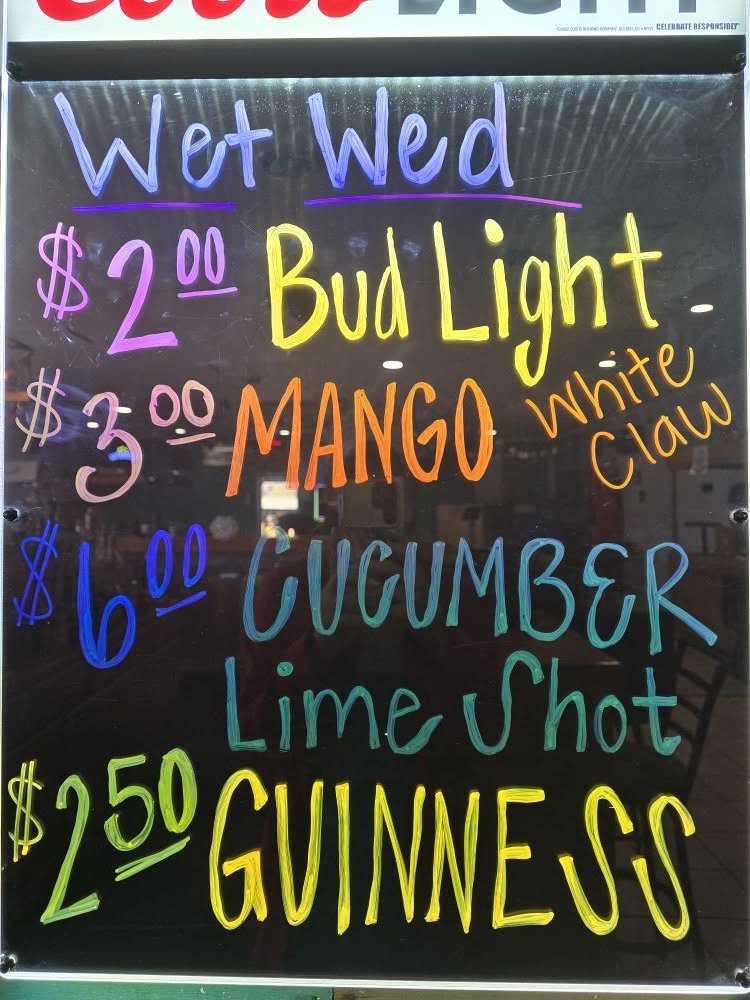 Coors LIGHT
CELEBRATE RESPONSIBLY
Wet Wed
$2.00 Bud Light
$3.00 MANGO White Claw
$6.00 CUCUMBER
Lime Shot
$2.50 GUINNESS